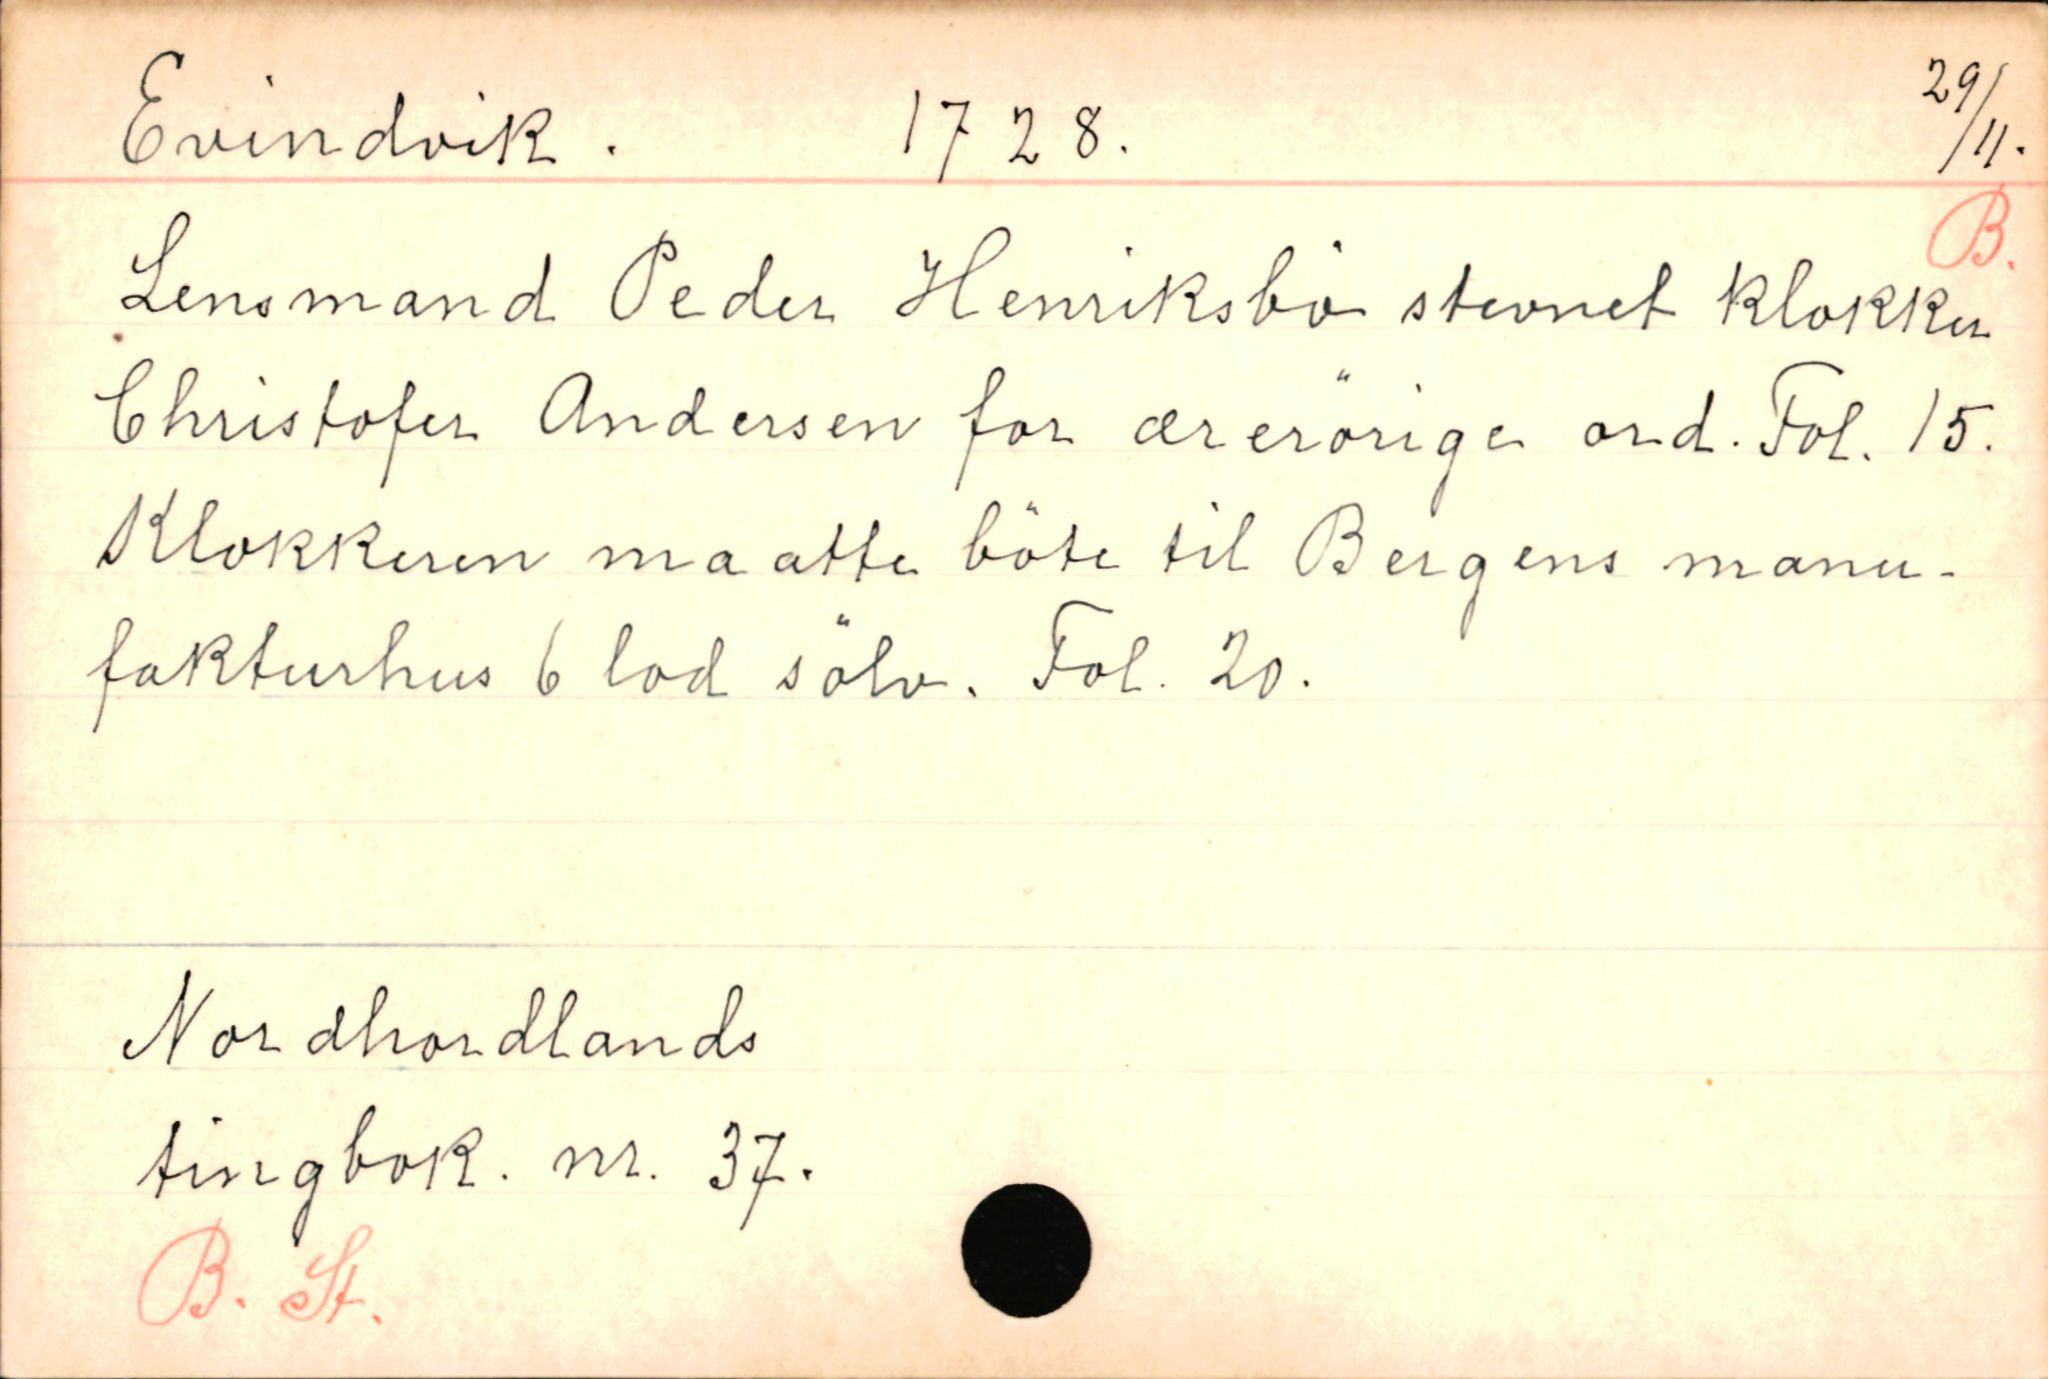 Evindvik. 1728. 29/11.
B.
Lensmand Peder Henriksbö stevnet klokker
Christofer Andersen for ærerörige ord. Fol. 15.
Klokkeren maatte böte til Bergens manu-
fakturhus 6 lod sölv. Fol. 20.
Nordhordlands
tingbok. nr. 37.
B. St.